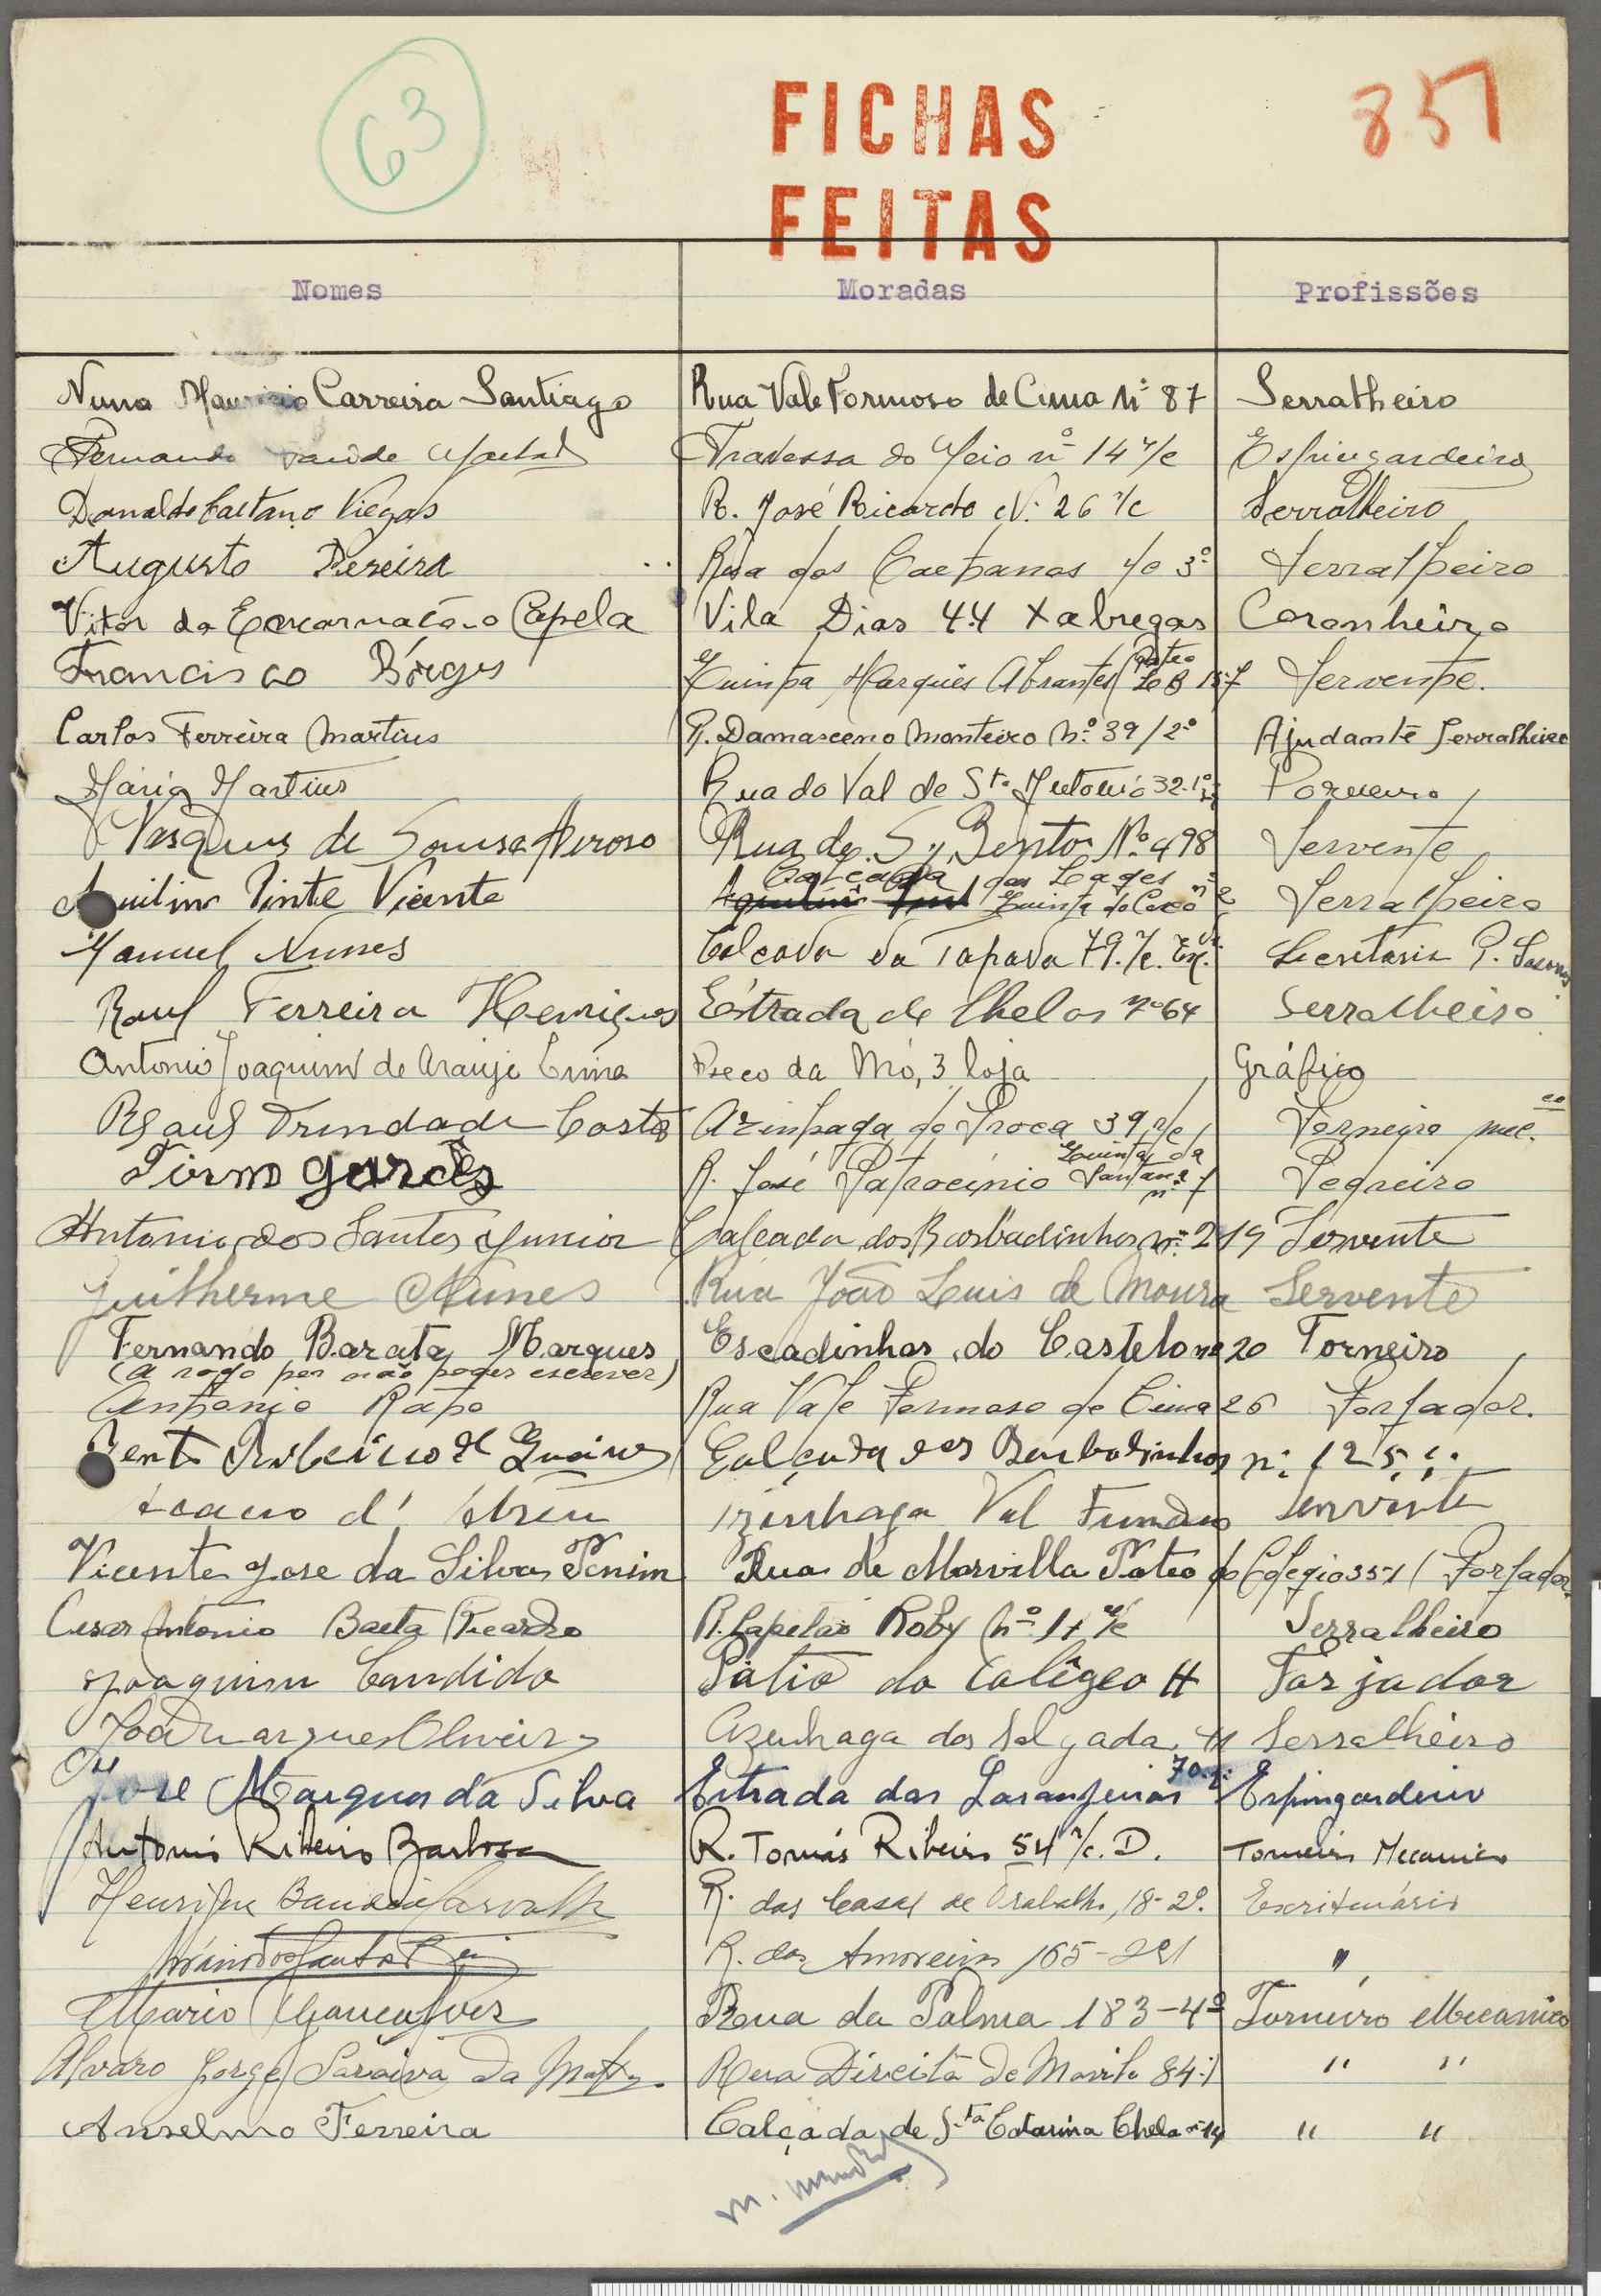 63
FICHAS
FEITAS
857
Nomes Moradas Profissões
Nuno Mauricio Carreira Santiago Rua Vale Formoso de Cima Nº 87 Serralheiro
Fernando Travessa do Meio nº 14 r/c Espingardeiro
Donaldo Caetano Viegas R. José Ricardo Nº 26 r/c Serralheiro
Augusto Pereira Rua dos Caetanos 3º Serralheiro
Vitor da Encarnação Capela Vila Dias 44 Xabregas Coronheiro
Francisco Borges Quinta Marquês Abrantes Pateo Servente.
Carlos Ferreira Martins R. Damasceno Monteiro Nº 39/2º Ajudante Serralheiro
Mário Martins Rua do Val de Stº António 32.1º
de Sousa Rua de S. Bento Nº 498 Servente
Aquilino Pinto Vicente Calçada das Lages Quinta do nº 2 Serralheiro
Manuel Nunes Calçada da Tapada 79. r/c. Esq.
Raul Ferreira Henriques Estrada de Chelas nº 64 Serralheiro
Antonio Joaquim de Araujo Lima Beco da Mó, 3 loja Gráfico
Raul Trindade Costa Azinhaga da 39 r/c Torneiro mec.co
Firmo Garcês R. José Patrocinio Quinta da Santana nº 7
Antonio dos Santos Junior Calçada dos Barbadinhos nº 219 Servente
Guilherme Nunes Rua João Luis de Moura Servente
Fernando Barata Marques Escadinhas do Castelo nº 20 Torneiro
(a rogo por não poder escrever)
Antonio Rapo Rua Vale Formoso de Cima 26 Forjador.
Bento Ribeiro Calçada dos Barbadinhos nº 125
d' Abreu Val Fundão Servente
Vicente Jose da Silva Penim Rua de Marvilla Pateo do Colegio 35-1 Forjador
Cesar Antonio Baeta Ricardo R. Capelão Roby Nº r/c Serralheiro
Joaquim Candido Pátio do Colégeo H Forjador
João Marques Oliveira Azenhaga dos Salgada Serralheiro
José Marques da Silva Estrada das Laranjeiras 70 Espingardeiro
António Ribeiro Barbosa R. Tomás Ribeiro 54 r/c. D. Torneiro Mecanico
Henrique Carvalho R. das Casas de Trabalho, 18-2º. Escriturário
R. das Amoreiras 165 "
Mario Gonçalves Rua da Palma 183-4º Torneiro Mecanico
Alvaro Jorge Saraiva da Mata Rua Direita de Marvila 84-1 " "
Anselmo Ferreira Calçada de Sta Catarina Chelas nº 14 " "